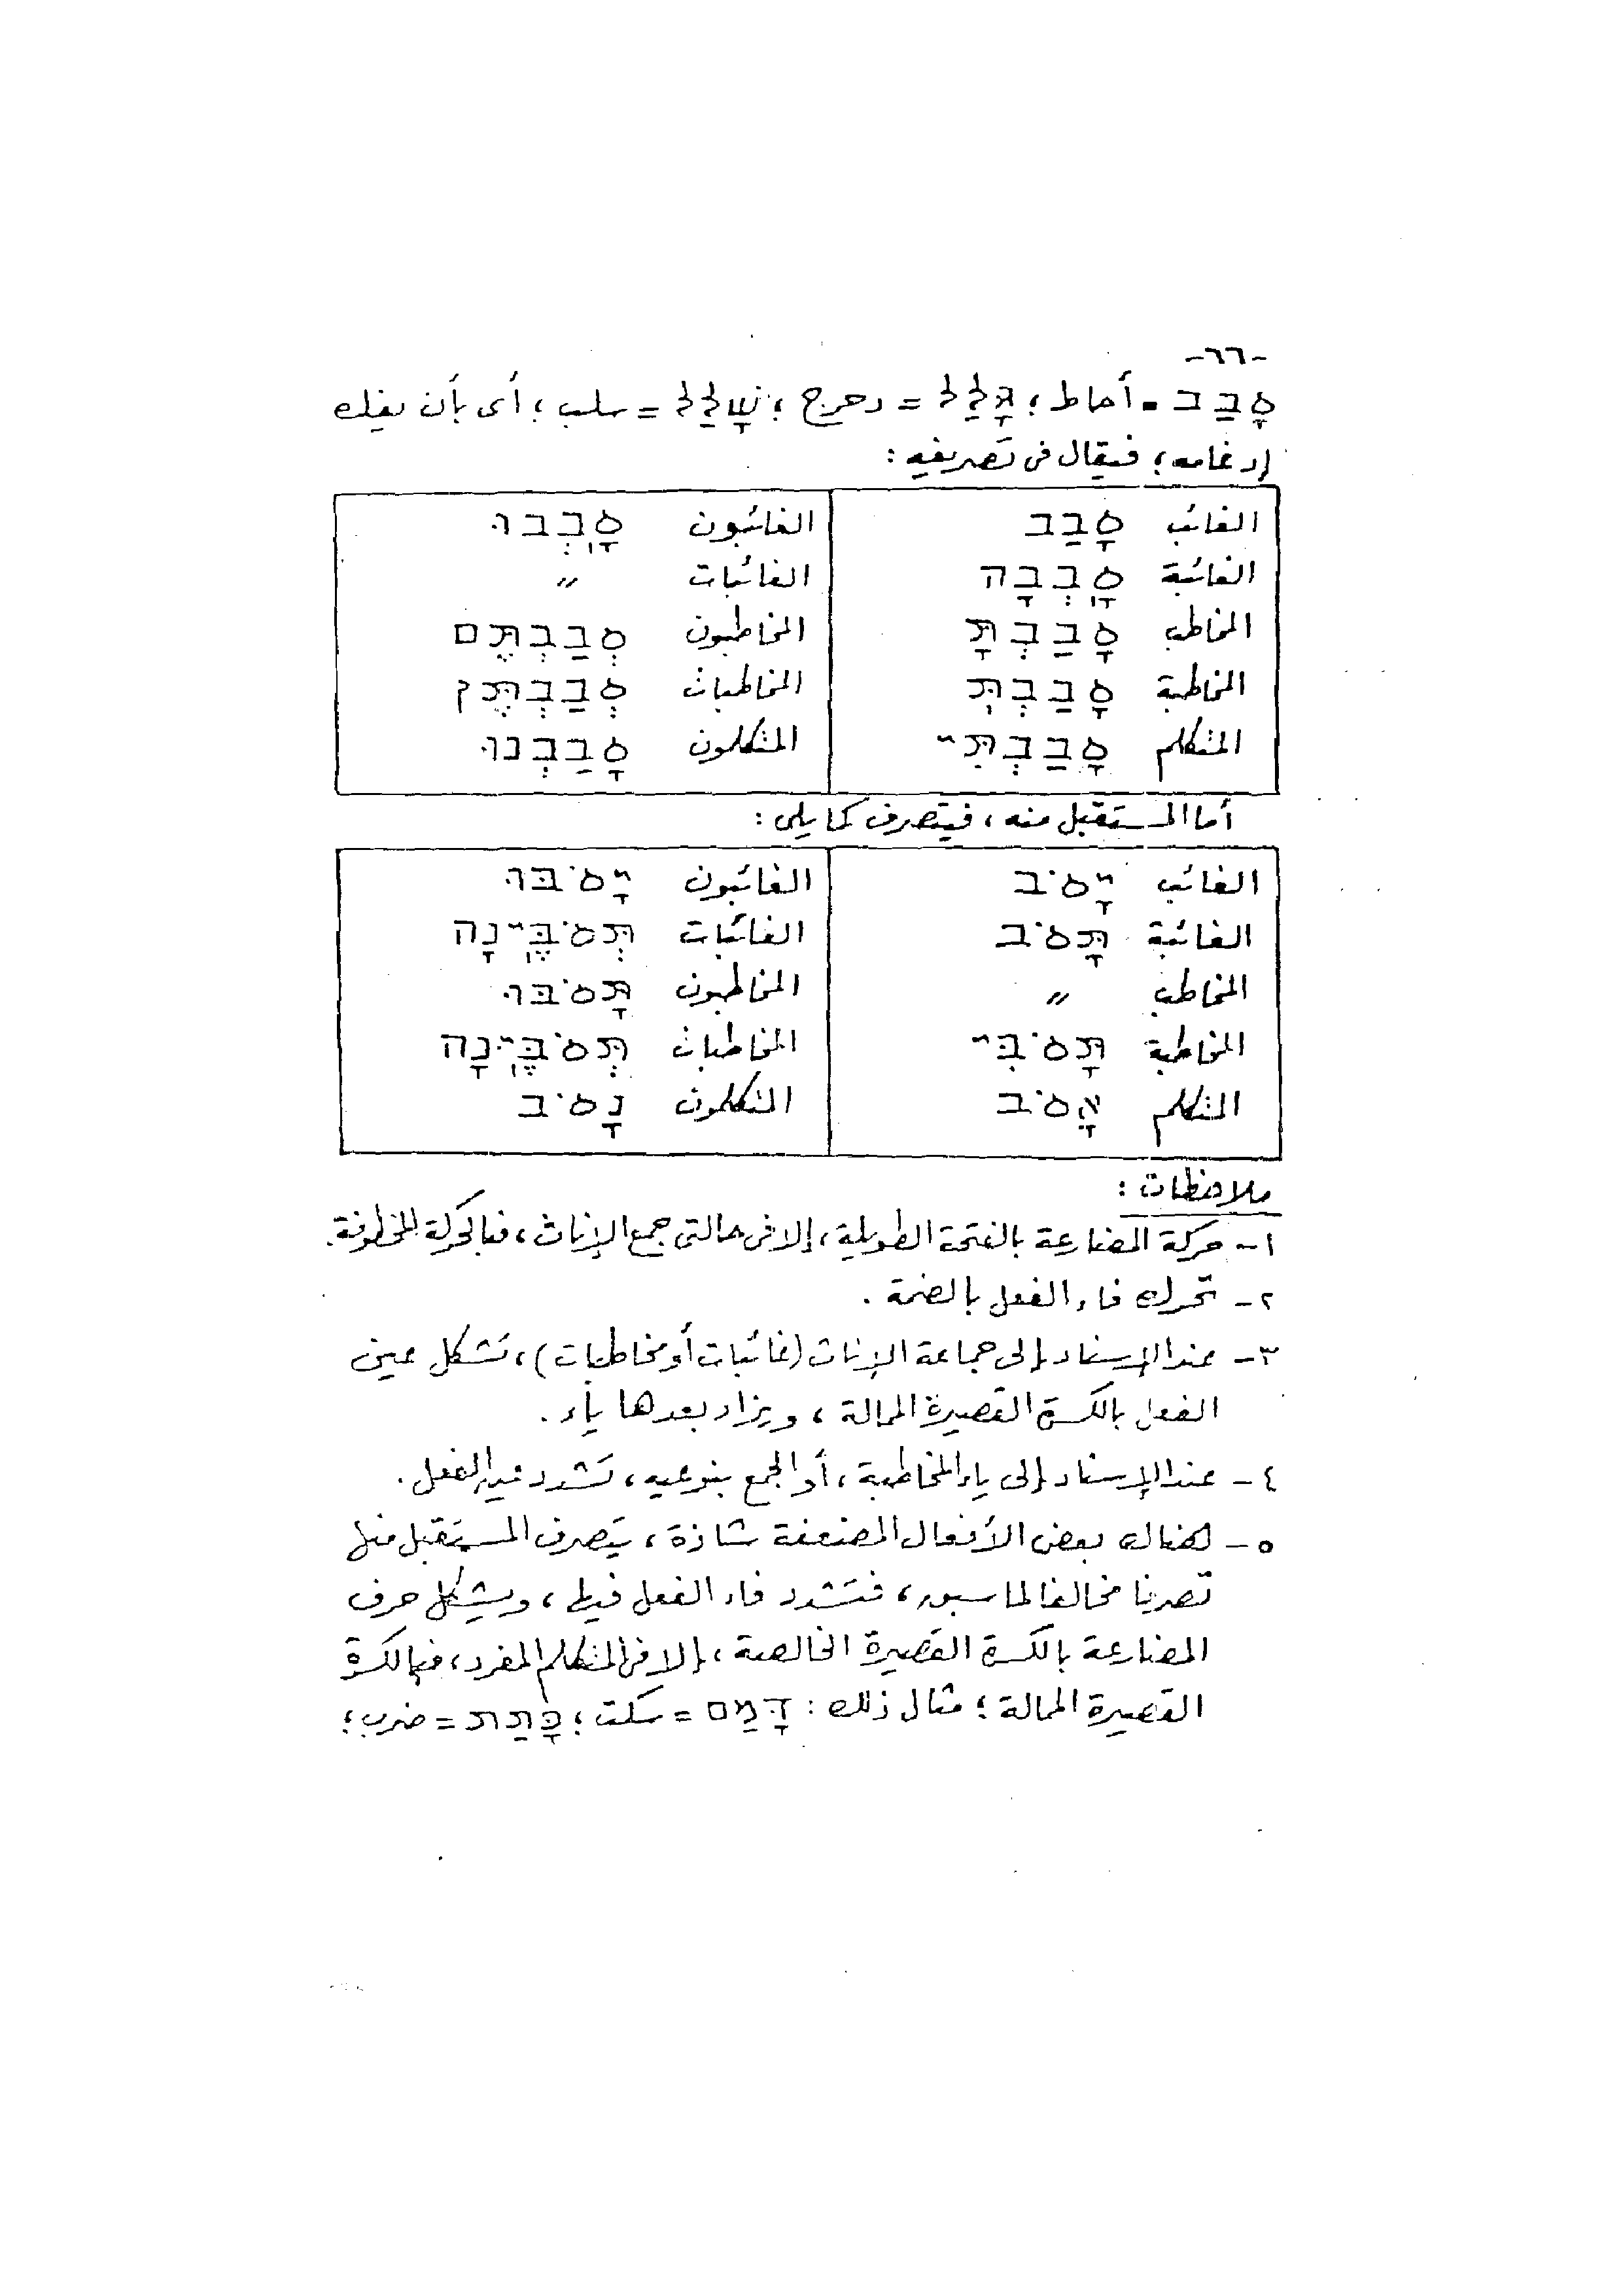 -٦٦-
סָבַב = أحاط ؛ גָּלַל = دحرج ؛ שָׁלַל = سلب ؛ أى بأن يفك
إدغامه ؛ فيقال فى تصريفه :
الغائب סָבַב الغائبون סָֽבְבוּ
الغائبة סָֽבְבָה الغائبات 〃
المخاطب סָבַבְתָּ المخاطبون סְבַבְתֶּם
المخاطبة סָבַבְתְּ المخاطبات סְבַבְתֶּן
المتكلم סָבַבְתִּי المتكلمون סָבַבְנוּ
أما المستقبل منه ، فيتصرف كما يلى :
الغائب יָסֹב الغائبون יָסֹבּוּ
الغائبة תָּסֹב الغائبات תְּסֹבֶּֽינָה
المخاطب 〃 المخاطبون תָּסֹבּוּ
المخاطبة תָּסֹבִּי المخاطبات תְּסֹבֶּֽינָה
المتكلم אָסֹב المتكلمون נָסֹב
ملاحظات :
١ - حركة المضارعة بالفتحة الطويلة ، إلا فى حالتى جمع الإناث ، فبالحركة المخطوفة .
٢ - تحرك فاء الفعل بالضمة .
٣ - عند الإسناد إلى جماعة الإناث (غائبات أو مخاطبات) ، تشكل عين
الفعل بالكسرة القصيرة الممالة ، ويزاد بعدها ياء .
٤ - عند الإسناد إلى ياء المخاطبة ، أو الجمع بنوعيه ، تشدد عين الفعل .
٥ - هناك بعض الأفعال المضعفة شاذة ، يتصرف المستقبل منها
تصريفا مخالفا لما سبق ، فتشدد فاء الفعل فيها ، ويشكل حرف
المضارعة بالكسرة القصيرة الخالصة ، إلا فى المتكلم المفرد ، فبالكسرة
القصيرة الممالة ؛ مثال ذلك : דָּמַם = سكت ؛ כָּתַת = ضرب ؛